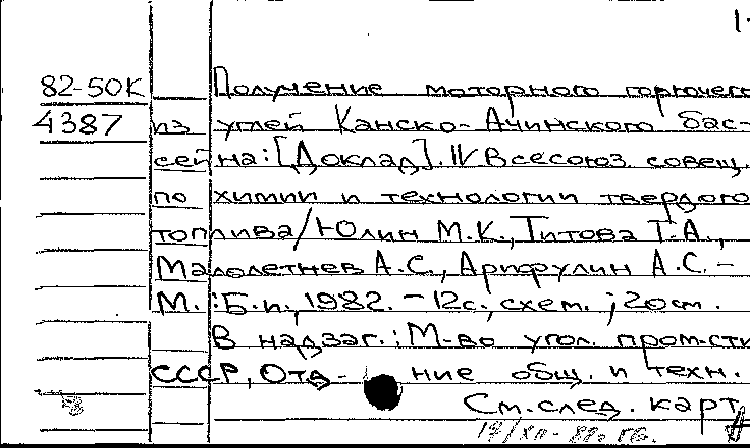 1.
82-50К Получение моторного горючего
4387 из углей Канско-Ачинского бас-
сейна: [Доклад]. IV Всесоюз. совещ.
по химии и технологии твердого
топлива/Юлин М.К., Титова Т.А.,
Малолетнев А.С., Арифулин А.С. –
М.: Б.и., 1982. – 12с., схем.; 20см.
В надзаг.: М-во угол. пром-сти
СССР, Отд- ние общ. и техн.
См. след. карт.